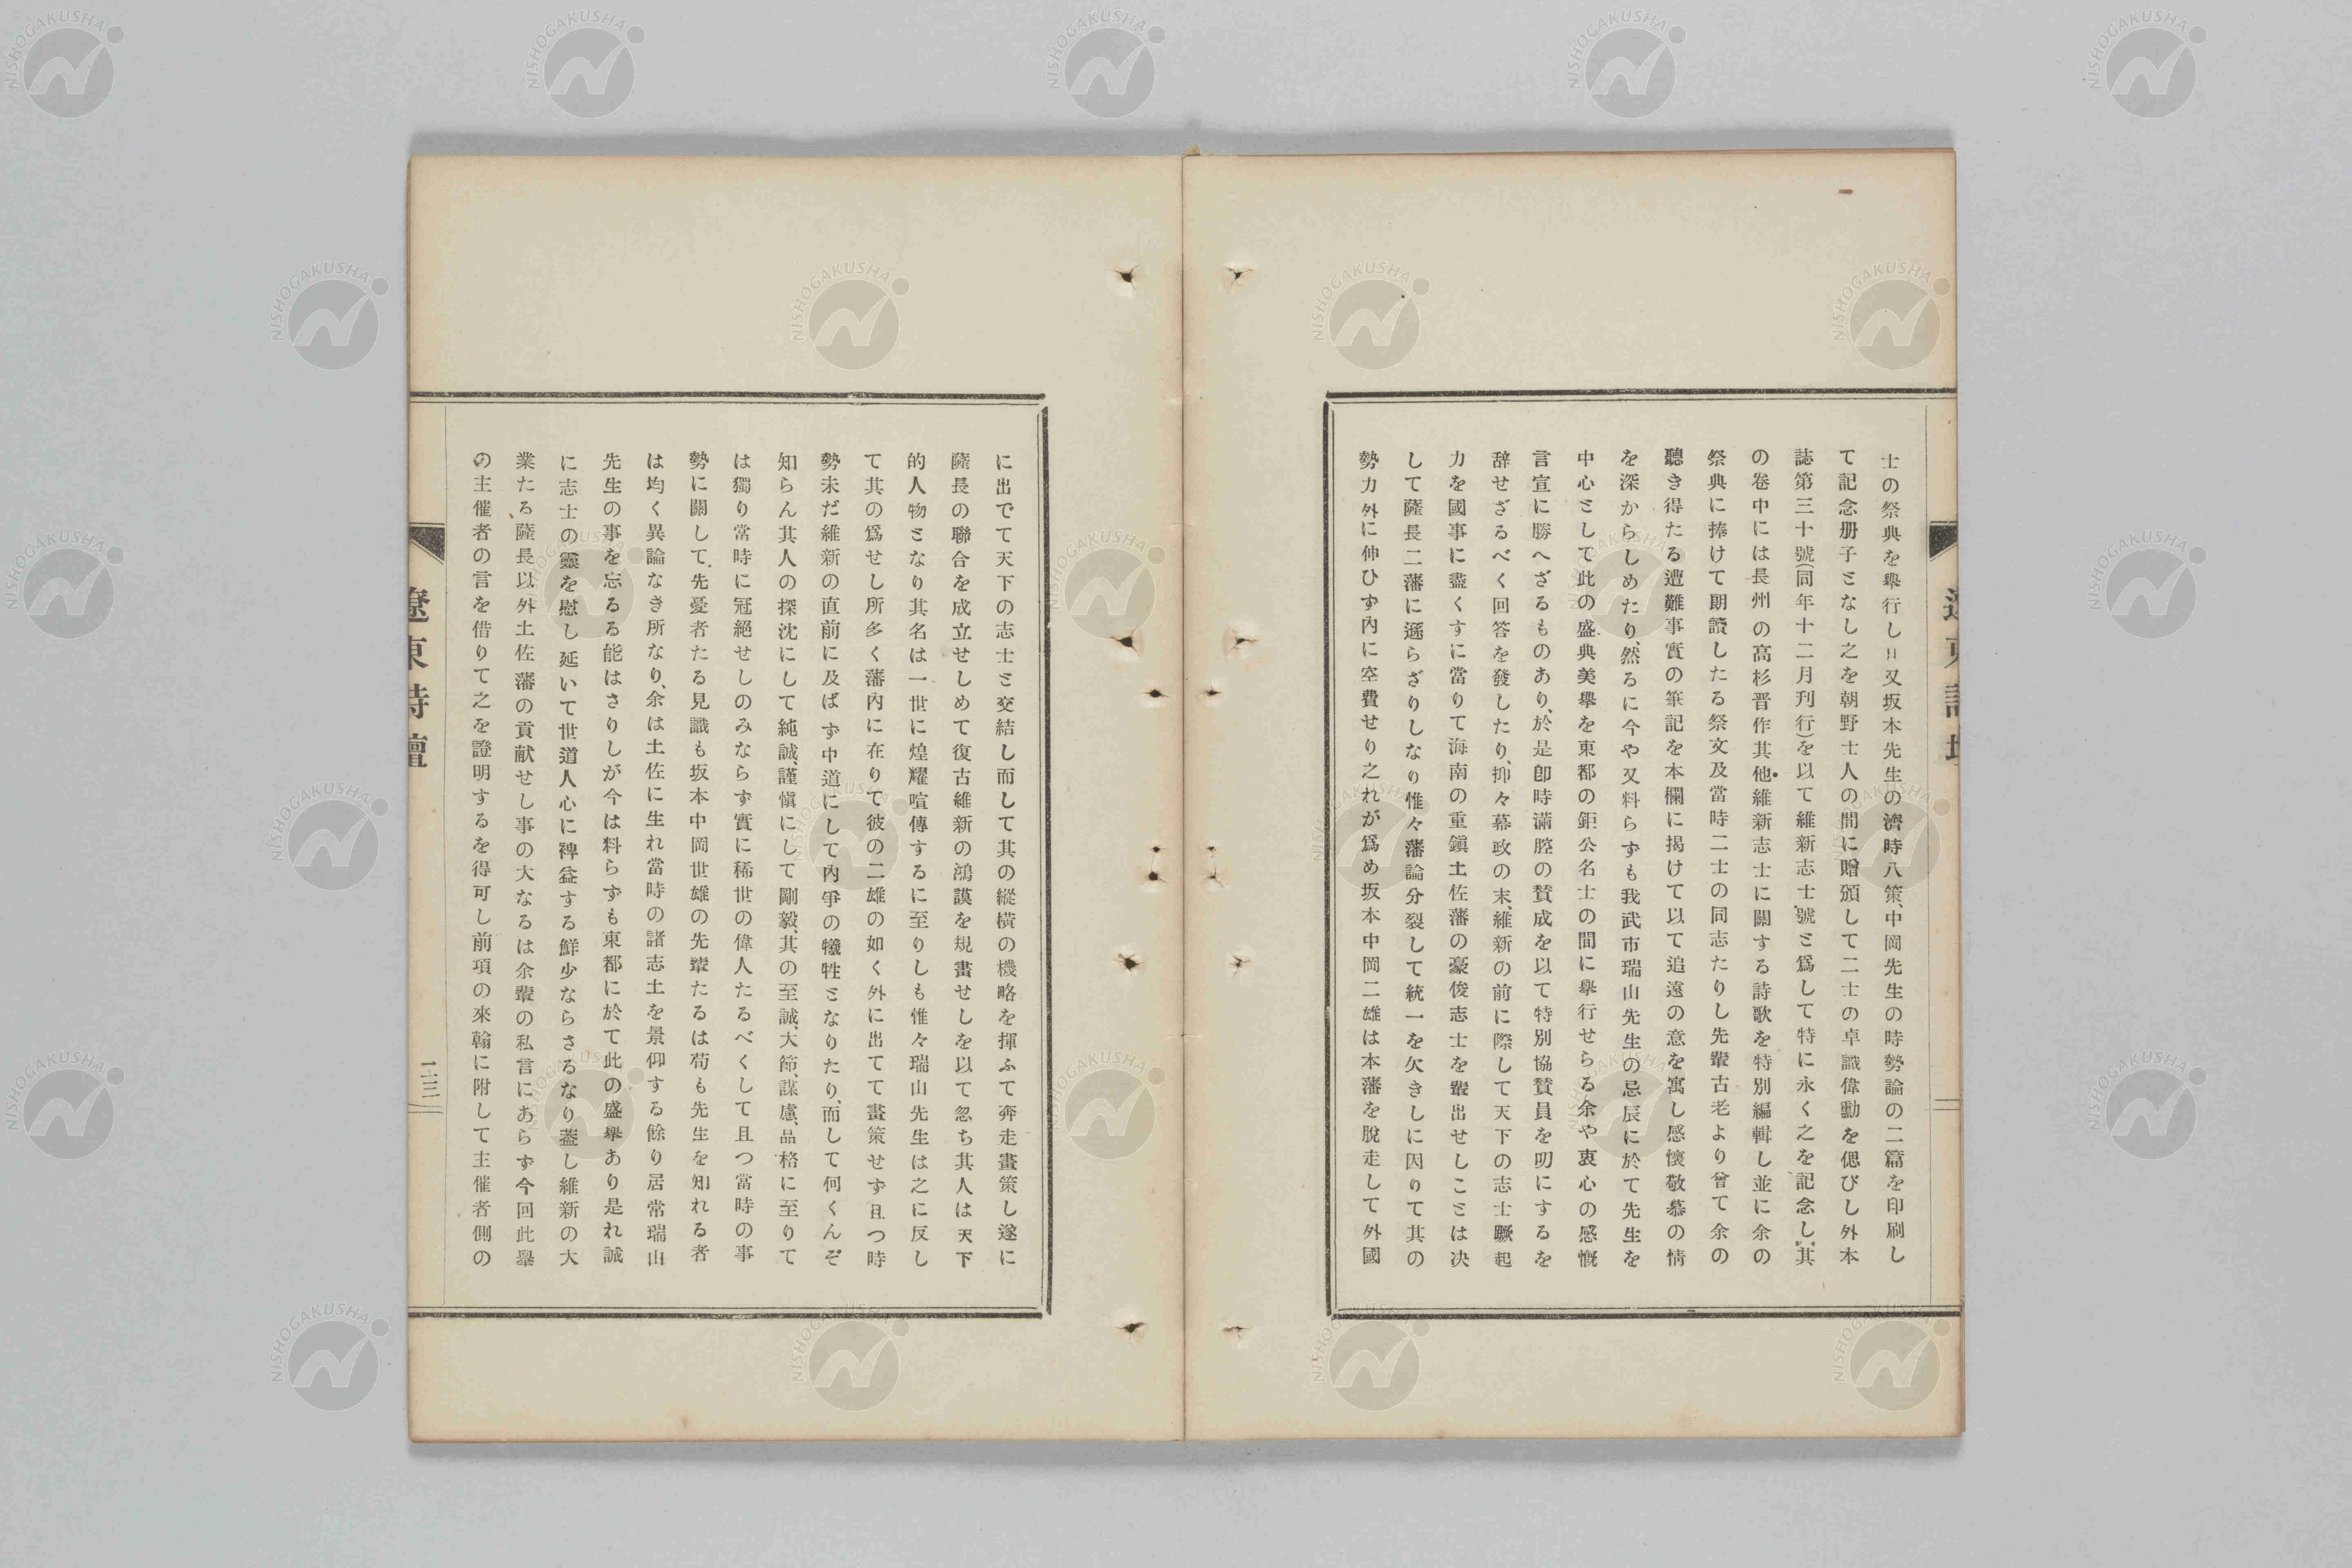 士の祭典を擧行し且又坂本先生の濟時八策、中岡先生の時勢論の二篇を印刷し
て記念册子となし之を朝野士人の間に贈頒して二士の卓識偉勳を偲びし外本
誌第三十號(同年十二月刊行)を以て維新志士號と爲して特に永く之を記念し、其
の卷中には長州の高杉晋作其他維新志士に關する詩歌を特別編輯し並に余の
祭典に捧けて朗讀したる祭文及當時二士の同志たりし先輩古老より曾て余の
聽き得たる遭難事實の筆記を本欄に揭けて以て追遠の意を寓し感懷敬慕の情
を深からしめたり、然るに今や又料らずも我武市瑞山先生の忌辰に於て先生を
中心として此の盛典美擧を東都の鉅公名士の間に擧行せらる余や衷心の感慨
言宣に勝へざるものあり、於是卽時滿腔の賛成を以て特別協賛員を明にするを
辭せざるべく回答を發したり、抑々幕政の末、維新の前に際して天下の志士蹶起
力を國事に盡くすに當りて海南の重鎭土佐藩の豪俊志士を輩出せしことは决
して薩長二藩に遜らざりしなり惟々藩論分裂して統一を欠きしに因りて其の
勢力外に伸ひず內に空費せり之れが爲め坂本中岡二雄は本藩を脫走して外國
に出でて天下の志士と交結し而して其の縱橫の機略を揮ふて奔走畫策し遂に
薩長の聯合を成立せしめて復古維新の鴻謨を規畫せしを以て忽ち其人は天下
的人物となり其名は一世に煌耀喧傳するに至りしも惟々瑞山先生は之に反し
て其の爲せし所多く藩內に在りて彼の二雄の如く外に出てて畫策せず且つ時
勢未だ維新の直前に及ばず中道にして內爭の犧牲となりたり、而して何くんぞ
知らん其人の探沈にして純誠、謹愼にして剛毅、其の至誠、大節、謀慮、品格に至りて
は獨り當時に冠絕せしのみならず實に稀世の偉人たるべくして且つ當時の事
勢に關して、先憂者たる見識も坂本中岡世雄の先輩たるは苟も先生を知れる者
は均く異論なき所なり、余は土佐に生れ當時の諸志士を景仰する餘り居常瑞山
先生の事を忘るる能はさりしが今は料らずも東都に於て此の盛擧あり是れ誠
に志士の靈を慰し延いて世道人心に裨益する鮮少ならさるなり蓋し維新の大
業たる薩長以外土佐藩の貢献せし事の大なるは余輩の私言にあらず今回此擧
の主催者の言を借りて之を證明するを得可し前項の來翰に附して主催者側の
遼東詩壇
二三